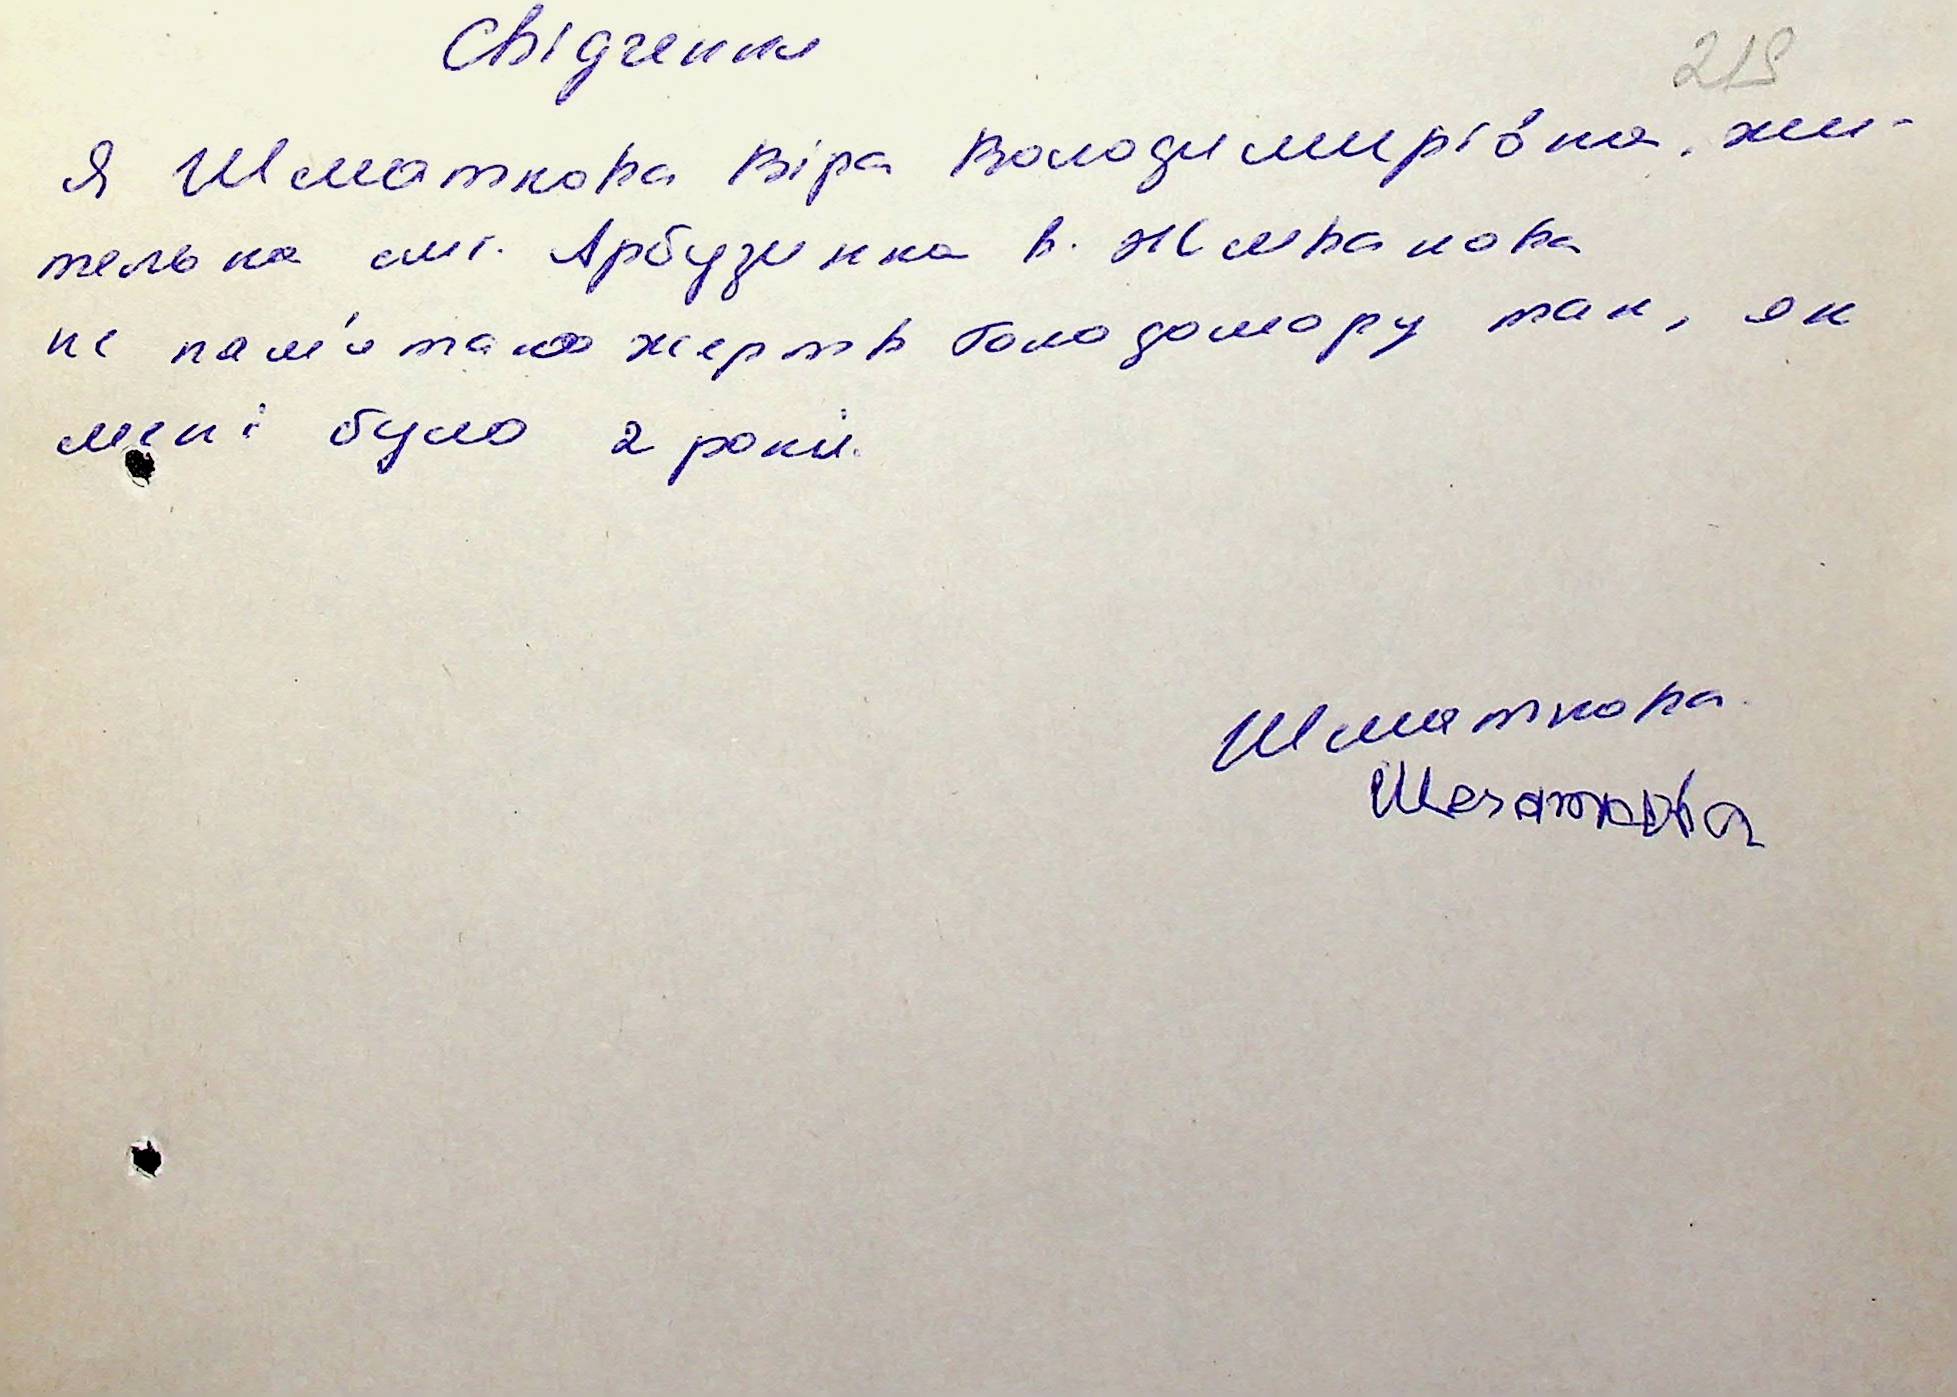 Свідчення
219
Я Шматкова Віра Володимирівна, жи-
телька смт. Арбузинка в. Жмвакова
не пам'ятаю жертв Голодомору так, як
мені було 2 роки.
Шматкова.
Шматкова